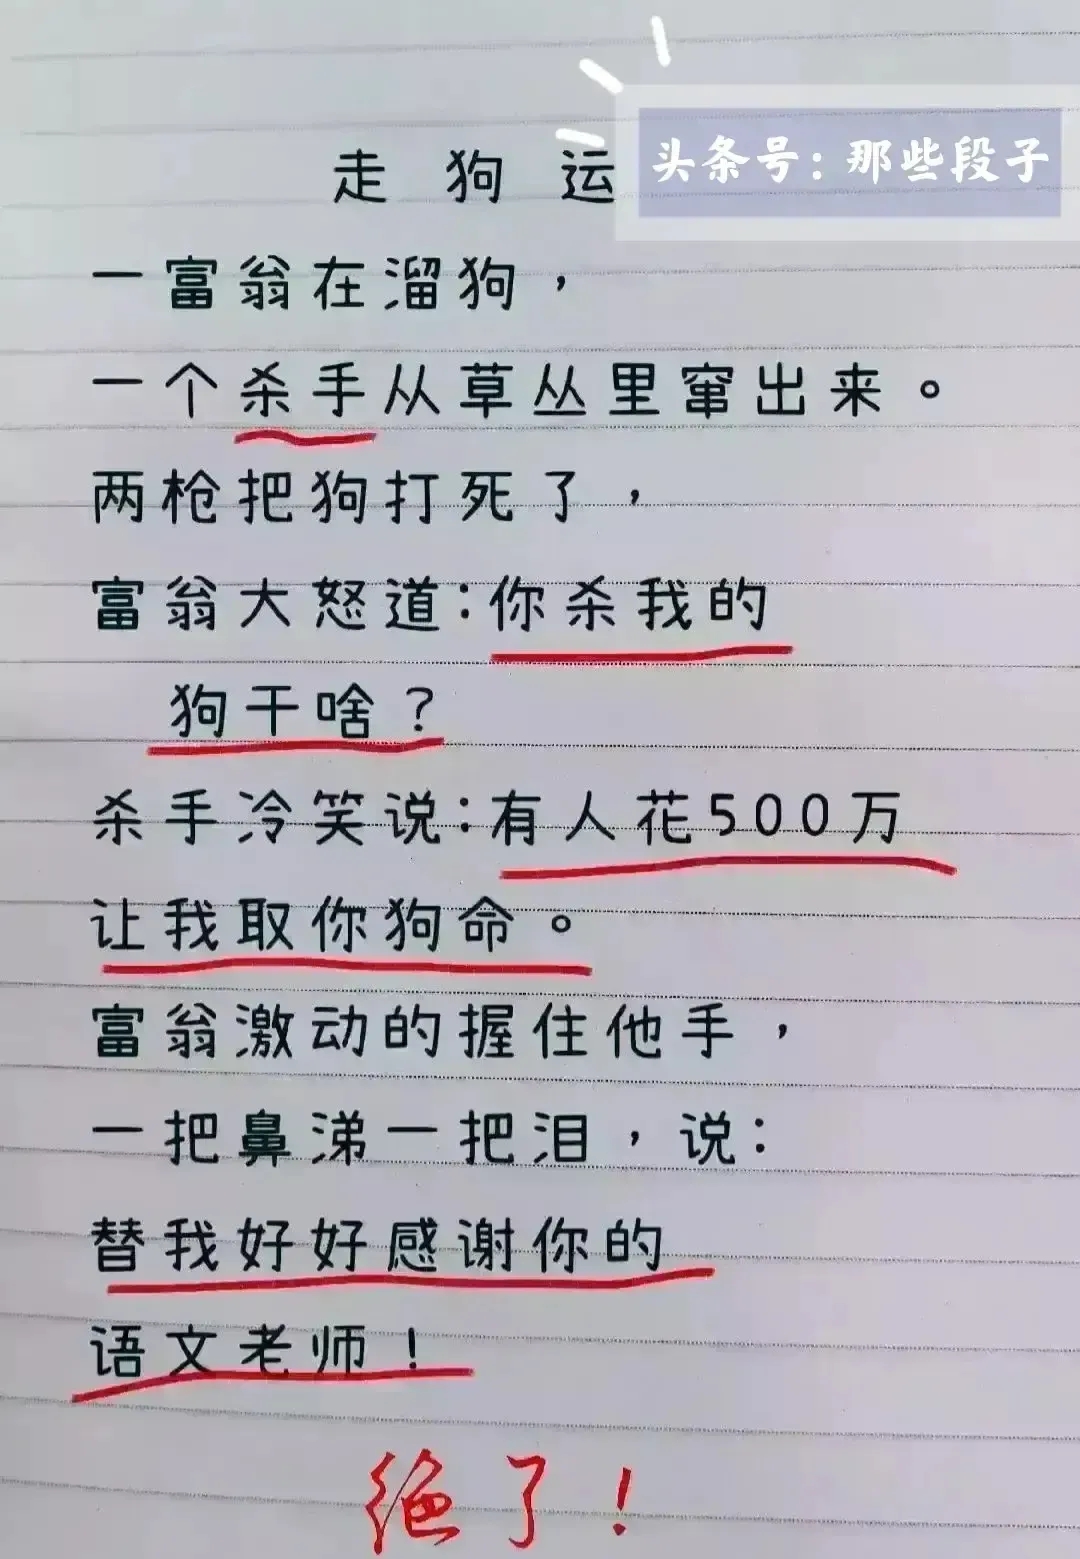 头条号：那些段子
走狗运
一富翁在溜狗，
一个杀手从草丛里窜出来。
两枪把狗打死了，
富翁大怒道：你杀我的
狗干啥？
杀手冷笑说：有人花500万
让我取你狗命。
富翁激动的握住他手，
一把鼻涕一把泪，说：
替我好好感谢你的
语文老师！
绝了！